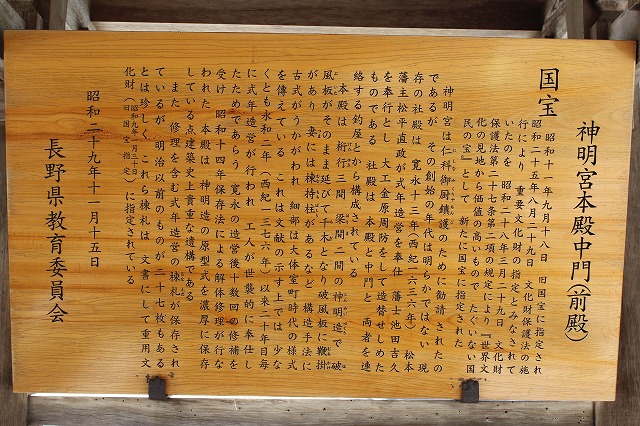 神明宮本殿中門(前殿)
国宝
昭和十一年九月十八日 旧国宝に指定され
昭和二十五年八月二十九日 文化財保護法の施
行により 重要文化財の指定とみなされて
いたのを 昭和二十八年三月二十九日 文化財
保護法第二十七条第二項の規定により「世界文
化の見地から価値の高いもので たぐいない国
民の宝」として 新たに国宝に指定された
神明宮は仁科御厨鎮護のために勧請されたの
であるが その創始の年代は明らかではない 現
存の社殿は 寛永十三年(西紀一六三六年) 松本
藩主松平直政が式年造営を奉仕 藩士池田吉久
を奉行とし 大工金原周防をして造替せしめた
ものである 社殿は 本殿と中門と 両者を連
絡する釣屋とから構成されている
本殿は 桁行三間 梁間二間の神明造で 破
風板がそのまま延びて千木となり破風板に鞭掛
があり 妻には棟持柱があるなど 構造手法に
古式がうかがわれ 細部は大体室町時代の様式
を傳えている これは文献の示す上では 少な
くとも永和二年(西紀一三七六年)以来二十年目毎
に式年造営が行われ 工人が世襲的に奉仕し
たためであらう 寛永の造営後十数回の修補を
受け 昭和十四年保存法による解体修理が行な
われた 本殿は 神明造の原型式を濃厚に保存
している点建築史上貴重な遺構である
また 修理を含む式年造営の棟札が保存され
ているが 明治以前のものが二十七枚もある
とは珍しく これら棟札は 文書にして重用文
化財(昭和九年一月三十日旧国宝指定)に指定されている
昭和二十九年十一月十五日
長野県教育委員会